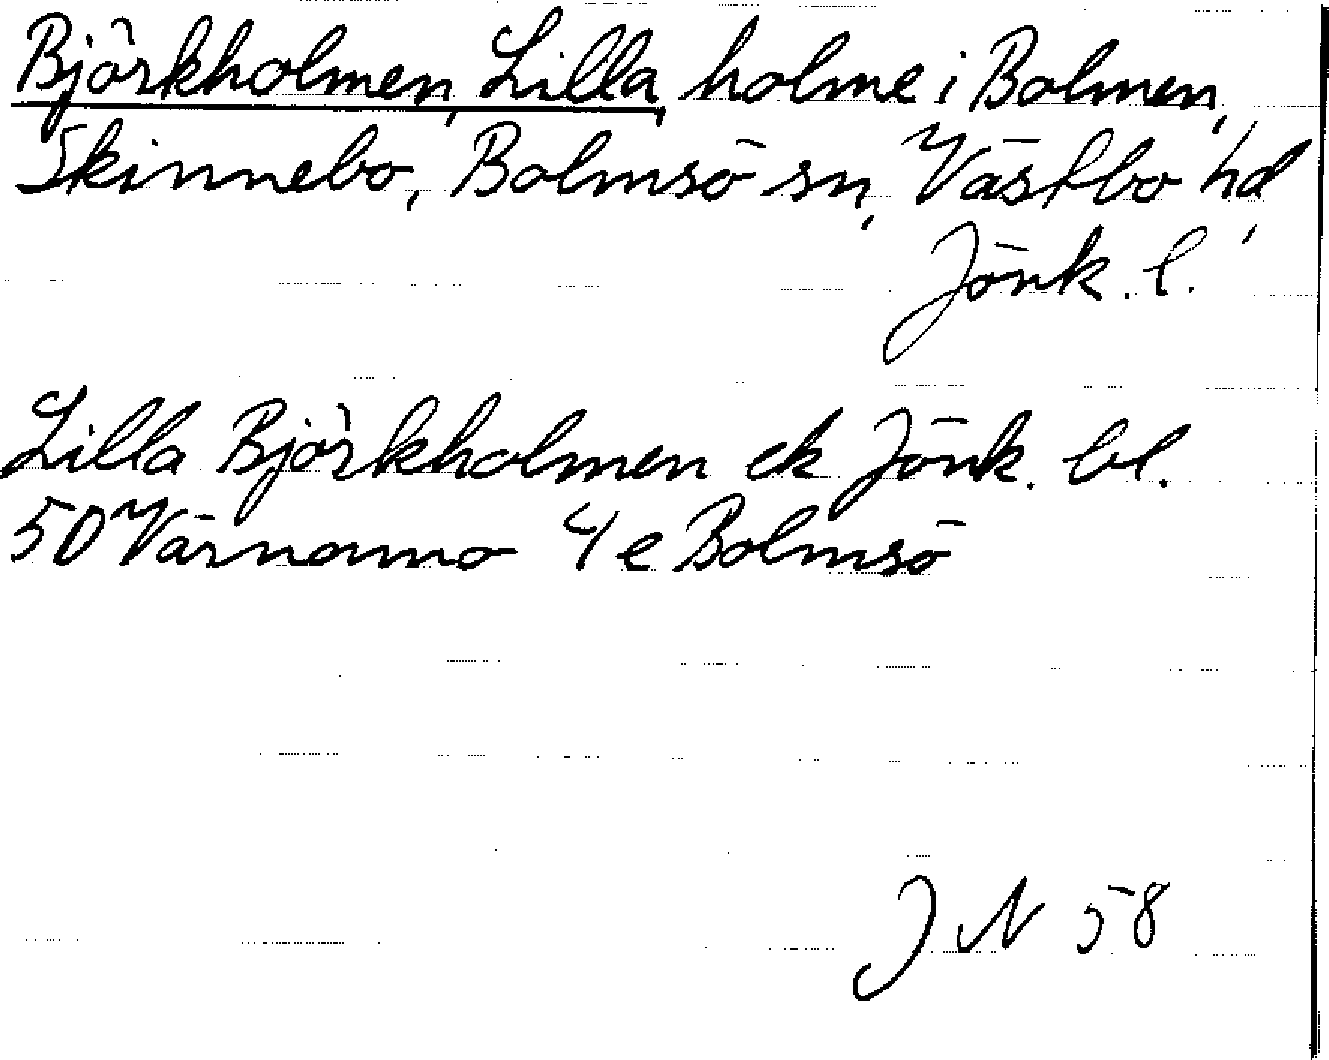 Björkholmen, Lilla, holme i Bolmen,
Skinnebo, Bolmsö sn, Västbo hd,
Jönk. l.
Lilla Björkholmen ek Jönk. bl.
50 Värnamo 4 e Bolmsö
J N 58